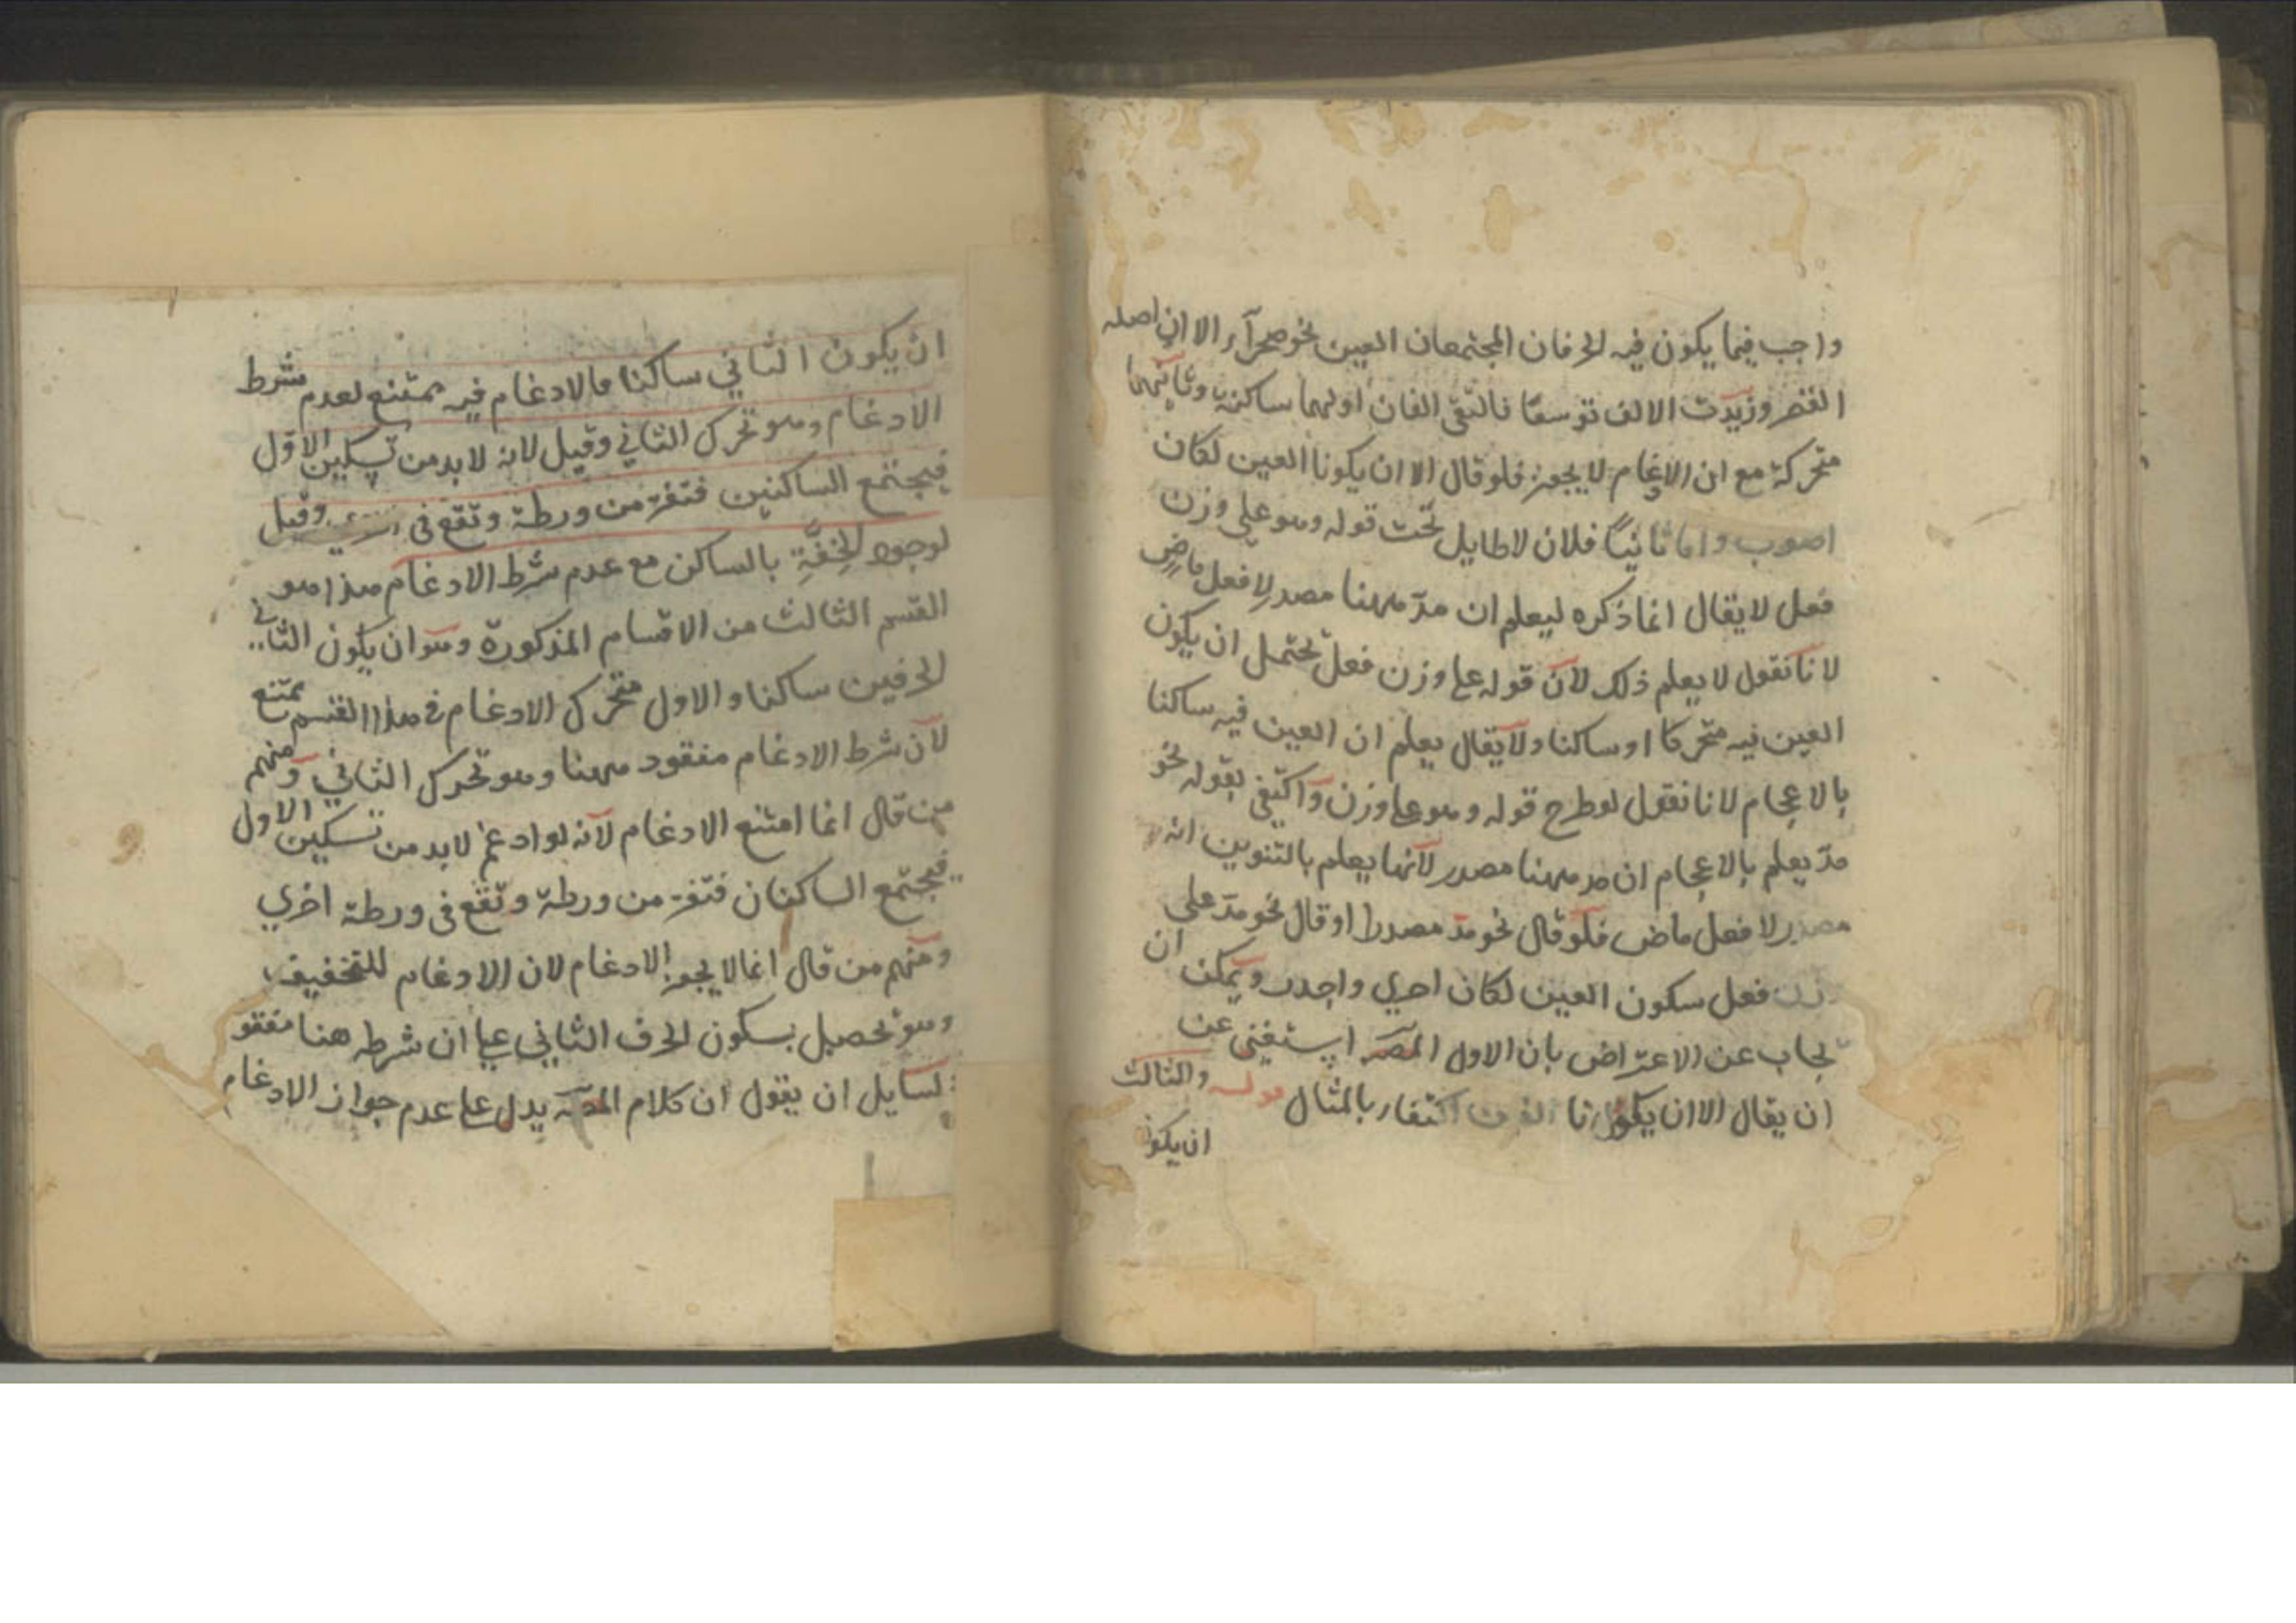 واجب فيما يكون فيه الحرفان المجتمعان العين نحو صحرآء الا ان اصله
القصر وزيدت الالف توسعًا فالتقى الفان اولهما ساكنة وثانيهما
متحركة مع ان الادغام لا يجوز فلو قال الا ان يكونا العين لكان
اصوب واما ثانيًا فلان لا طايل تحت قوله وهو على وزن
فعل لا يقال انما ذكره ليعلم ان مدّ ههنا مصدر لا فعل ماضٍ
لانا نقول لا يعلم ذلك لان قوله على وزن فعل تحتمل ان يكون
العين فيه متحركا او ساكنا ولا يقال يعلم ان العين فيه ساكنا
بالاعجام لانا نقول لو طرح قوله وهو على وزن واكتفى بقوله نحو
مدّ يعلم بالاعجام ان مد ههنا مصدر لانها يعلم بالتنوين انه
مصدر لا فعل ماض فلو قال نحو مدّ مصدرا او قال نحو مدّ على
وزن فعل سكون العين لكان احري واجدر ويمكن ان
يجاب عن الاعتراض بان الاول المصـ استغنى عن
ان يقال الا ان يكونا اكتفاء بالمثال قوله والثالث
ان يكون
ان يكون الثاني ساكنا فالادغام فيه ممتنع لعدم شرط
الادغام وهو تحرك الثاني وقيل لانه لا بد من تسكين الاوّل
فيجتمع الساكنين فتفرّ من ورطة وتقع في وقيل
لوجود الخِفَّةِ بالساكن مع عدم شرط الادغام هذا هو
القسم الثالث من الاقسام المذكورة وهو ان يكون الثاني
الحرفين ساكنا والاول متحرك الادغام في هذا القسم ممتنع
لان شرط الادغام مفقود ههنا وهو تحرك الثاني ومنهم
من قال انما امتنع الادغام لانه لو ادغم لا بد من تسكين الاول
فيجتمع الساكنان فتفرّ من ورطة وتقع في ورطة اخري
ومنهم من قال انما لا يجوز الادغام لان الادغام للتخفيف
وهو تحصيل بسكون الحرف الثاني على ان شرطه هنا مفقو
لسايل ان يقول ان كلام المصـ يدل على عدم جواز الادغام